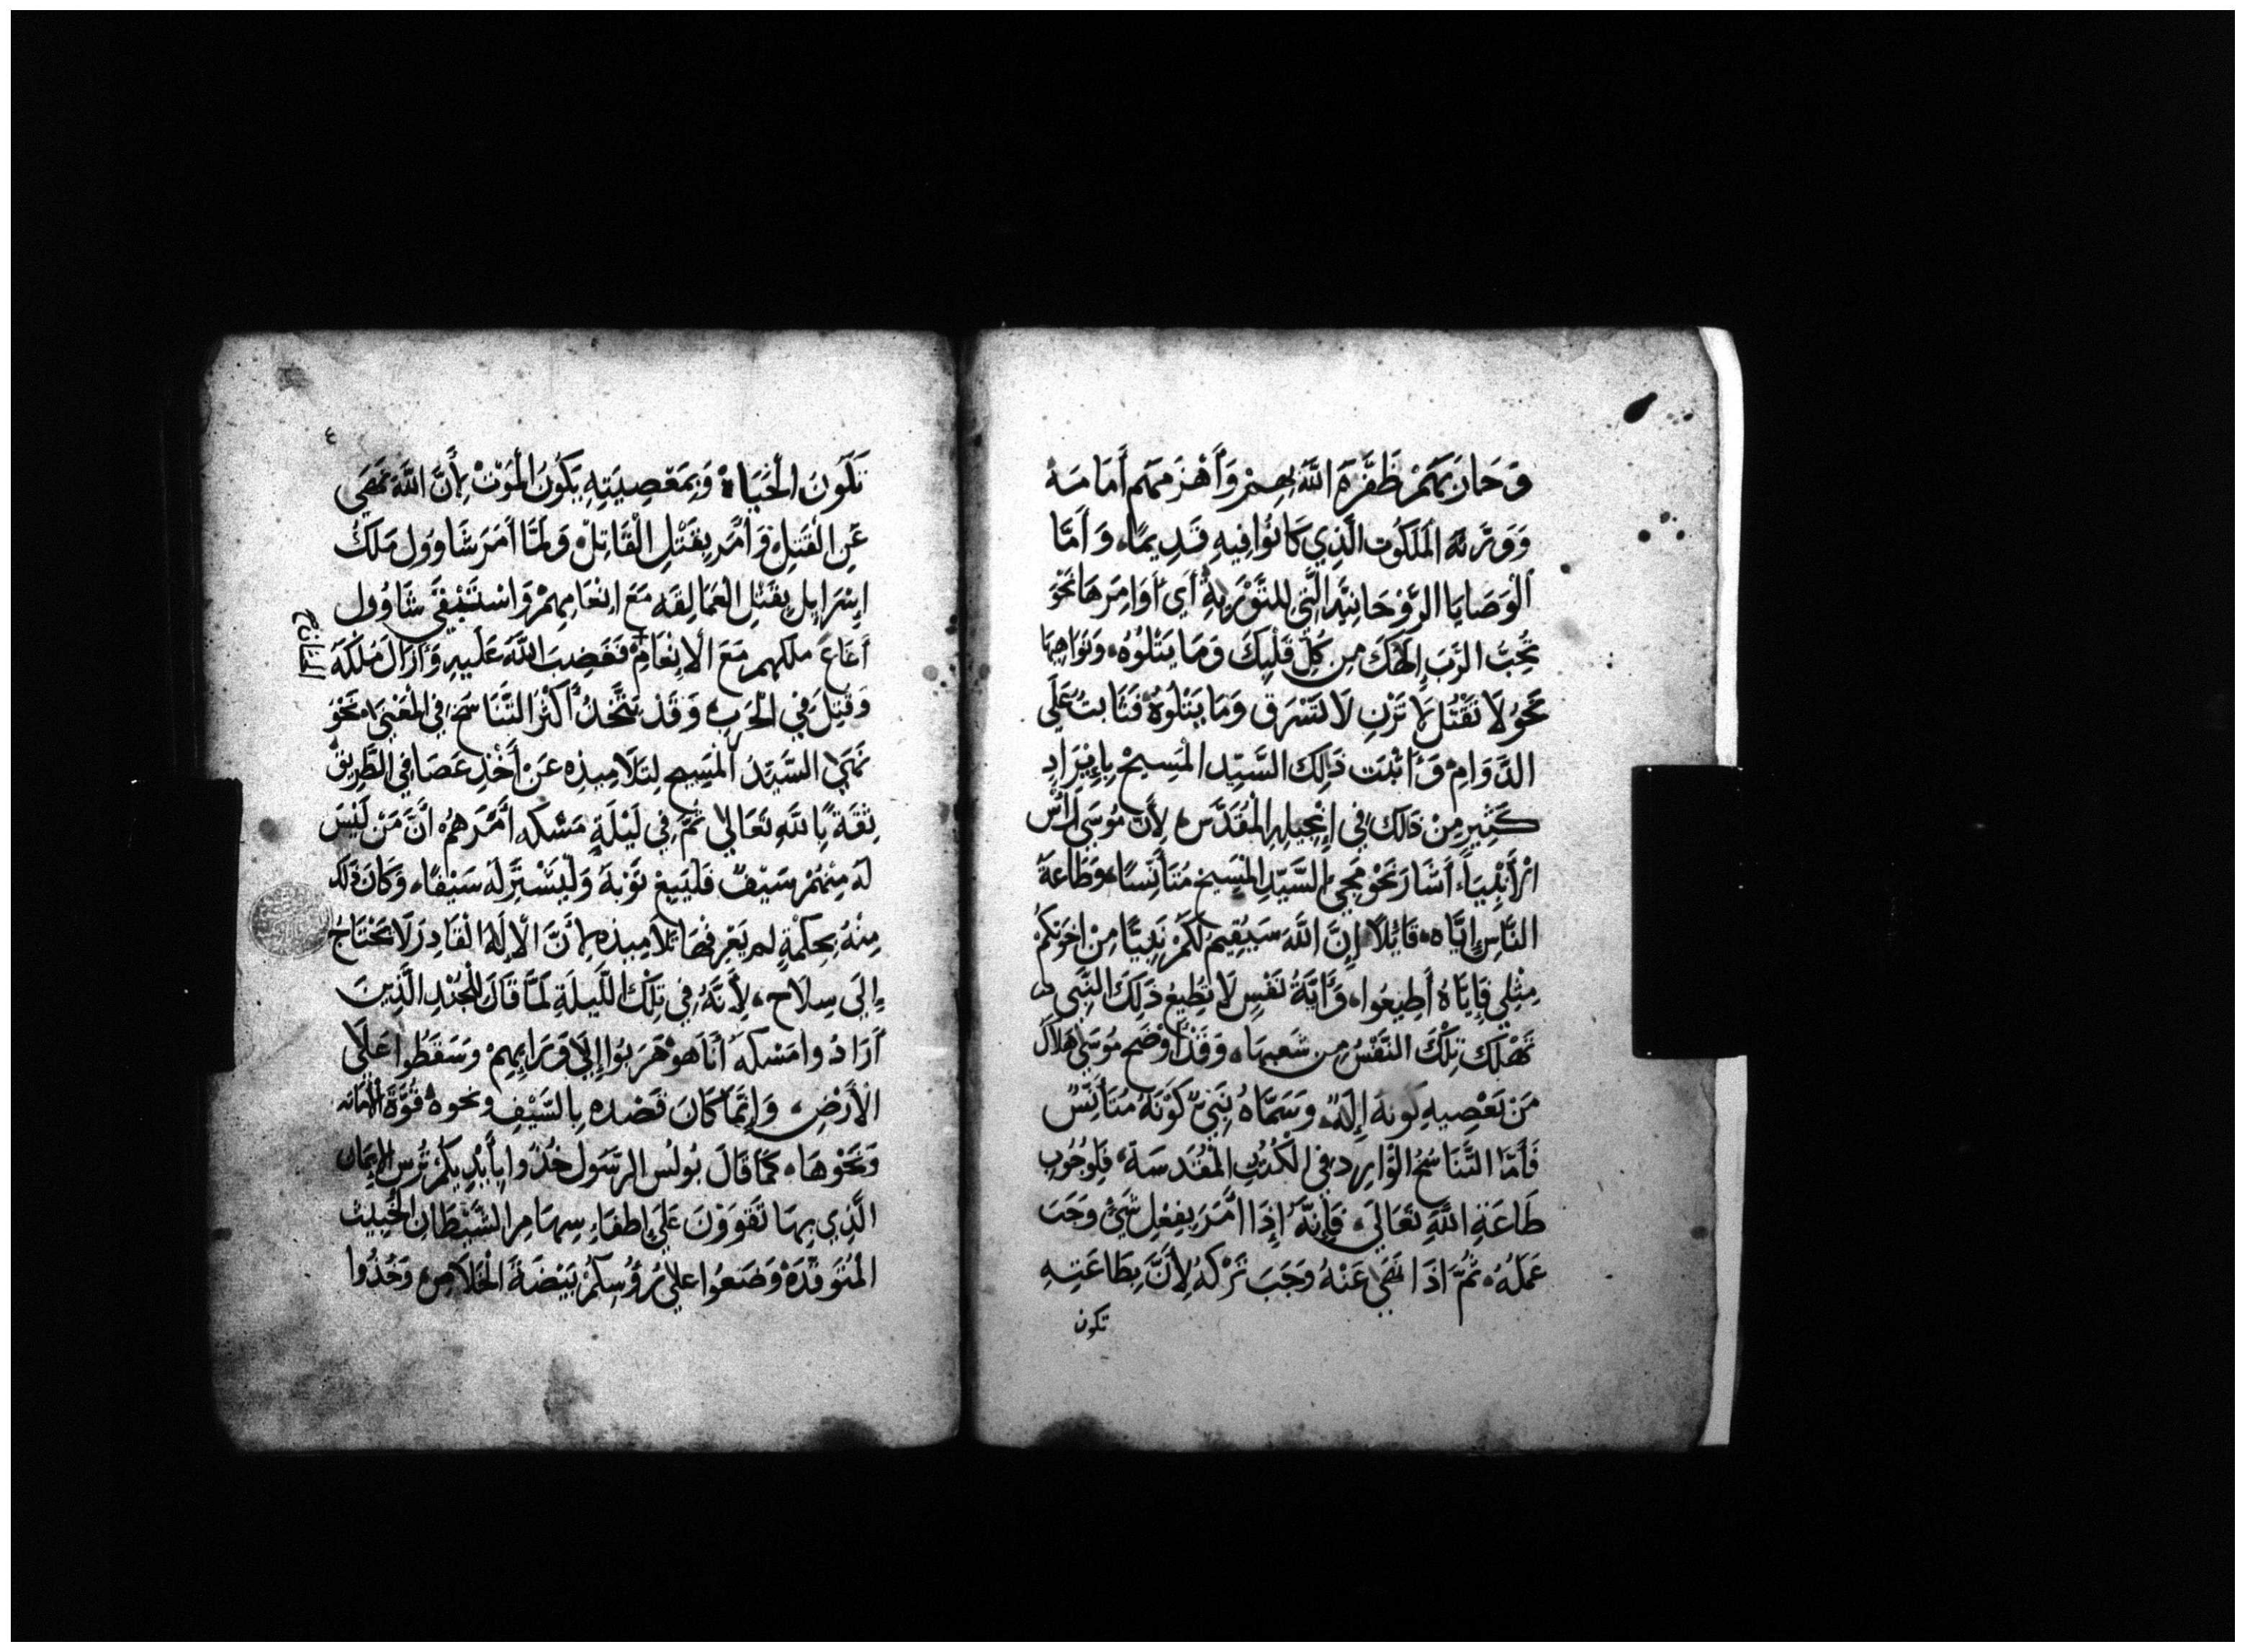 وَحَارَبَهُمْ ظَفَّرَهُ اللَّهُ بِهِمْ وَأَهْزَمَهُم أَمَامَهُ
وَوَرَّثَهُ المَلَكُوت الَّذِي كَانُوا فِيهِ قَدِيمًا، وَأَمَّا
الْوَصَايَا الرَّوْحَانِيَّه الَّتِي لِلتَّوْرَيةِ أَي أَوَامِرَهَا نَحْوَ
تُحِبُّ الرَّبَ إِلَهَكَ مِن كُلِّ قَلْبِكَ وَمَا يَتْلُوُهُ، وَنَوَاهِيهَا
نَحْوُ لَا تَقْتُل لَا تَزْنِ لَا تَسْرَق وَمَا يَتْلُوهُ فَثَابتُ عَلَى
الدَّوَامِ وَأَثْبَتَ ذَلِكَ السَّيِّد المَسِيحْ بِإِيْرَادِ
كَثِيرٍ مِنْ ذَلكَ فِي إِنْجِيلِهِ المُقَدَّس لِأَنَّ مُوسَى رَأْس
الْأَنْبِيَاء أَشَارَ نَحْوَ مَجِي السَّيِّد المَسِيح مُتَأَنِّسًا، وَطَاعَةَ
النَّاسِ إِيَّاهُ، قَائِلًا إِنَّ اللَّهَ سَيُقِيمُ لَكُمْ نَبِيًّا مِنْ اخوَتِكُمْ
مِثْلِي فَإِيَّاهُ أَطِيعُوا، وَأَيَّةُ نَفْسٍ لَا تُطِيعُ ذَلِكَ النَّبِي
تَهْلَك تِلْكَ النَّفْسُ مِن شَعبِهَا، وَقَدْ أَوْضَح مُوسَى هَلَاكَ
مَنْ يَعْصِيهِ كَونهُ إِلَهً، وَسَمَّاهُ نَبِيّ كَوْنَهُ مُتَأَنِّسً
فَأَمَّا التَّنَاسُخُ الْوَارِد فِي الكُتُبِ المُقَدَسَةِ، فَلِوُجُوبِ
طَاعَةِ اللَّهِ تَعَالَى، فَإِنَّهُ إِذَا أَمَرَ بِفِعْلِ شَيْ وَجَبَ
عَمَلُهُ، ثُمَّ اذَا نَهَى عَنْهُ وَجَبَ تَرْكهُ لِأَنَّ بِطَاعَتِهِ
تكون
٤
تَكُونُ الحَيَاة وَبِمَعْصِيَتِهِ يَكُونُ المَوْتُ لِأَنَّ اللَّهَ نَهَى
عَنِ القَتِل، وَأَمَر بِقَتْلِ القَاتِلْ، وَلَمَّا أَمَرَ شَاوُول مَلَكُ
إِسْرَايِل بِقَتْلِ الْعَمَالِقَهِ مَعَ انْعَامِهِمْ وَاسْتَبْقَى شَاوُول
أَغَاغَ مَلكهِم مَعَ الانْعَامِ فَغَضِبَ اللَّهُ عَلَيهِ وَأَزَالَ مُلْكَهُ
التناسخ
وَقُتِلَ فِي الحَربِ وَقَدْ يَتَّحَدُ أَكْثَرُ التَّنَاسُخ فِي المَعْنَى، نَحْوُ
نَهَيَ السَّيِّدُ المَسِيح لِتَلَامِيذِه عَنْ أَخْذِ عَصَا فِي الطَّرِيقْ
ثِقَةً بِاللَّهِ تَعَالَى ثُمَّ فِي لَيْلَةِ مَسْكهِ أَمَرَهمُ أَنَّ مَنْ لَيْسَ
لَهُ مِنْهُمْ سَيْفٌ فَلْيَبِعْ ثَوْبَهُ وَلْيَشْتَرِ لَهُ سَيْفًا، وَكَانَ ذلك
مِنْهُ بِحِكْمَةٍ لم يَعْرِفهَا تَلَامِيذه لِأَنَّ الْإلَهَ الْقَادِرَ لَا يَحْتَاجُ
إِلَى سِلَاح، لِأَنَّهُ فِي تِلْكَ اللَّيلَةِ لَمَّا قَالَ لِلجُنْدِ الَّذِينَ
أَرَادُوا مَسْكهُ أَنَا هوْ هَرَبُوا إِلَى وَرَايِهِمْ وَسَقَطُوا عَلَى
الْأَرْضِ، وَإِنَّمَا كَانَ قَصْده بِالسَّيْفِ ونحوه قُوَّة الأمَانه
وَنَحْوهَا، كَمَا قَالَ بُولُس الرَّسُول خُذُوا بِأَيْدِيكُمْ تُرس الإيمَان
الَّذِي بِهَا تَقْوَوْنَ عَلَى إِطفَاءِ سِهَامِ الشَّيْطَانِ الخَبِيث
المُتَوَقِّدَةْ وَضَعُوا عَلَى رُؤُسِكُمْ بَيْضَةَ الْخَلَاص وَخُذُوا